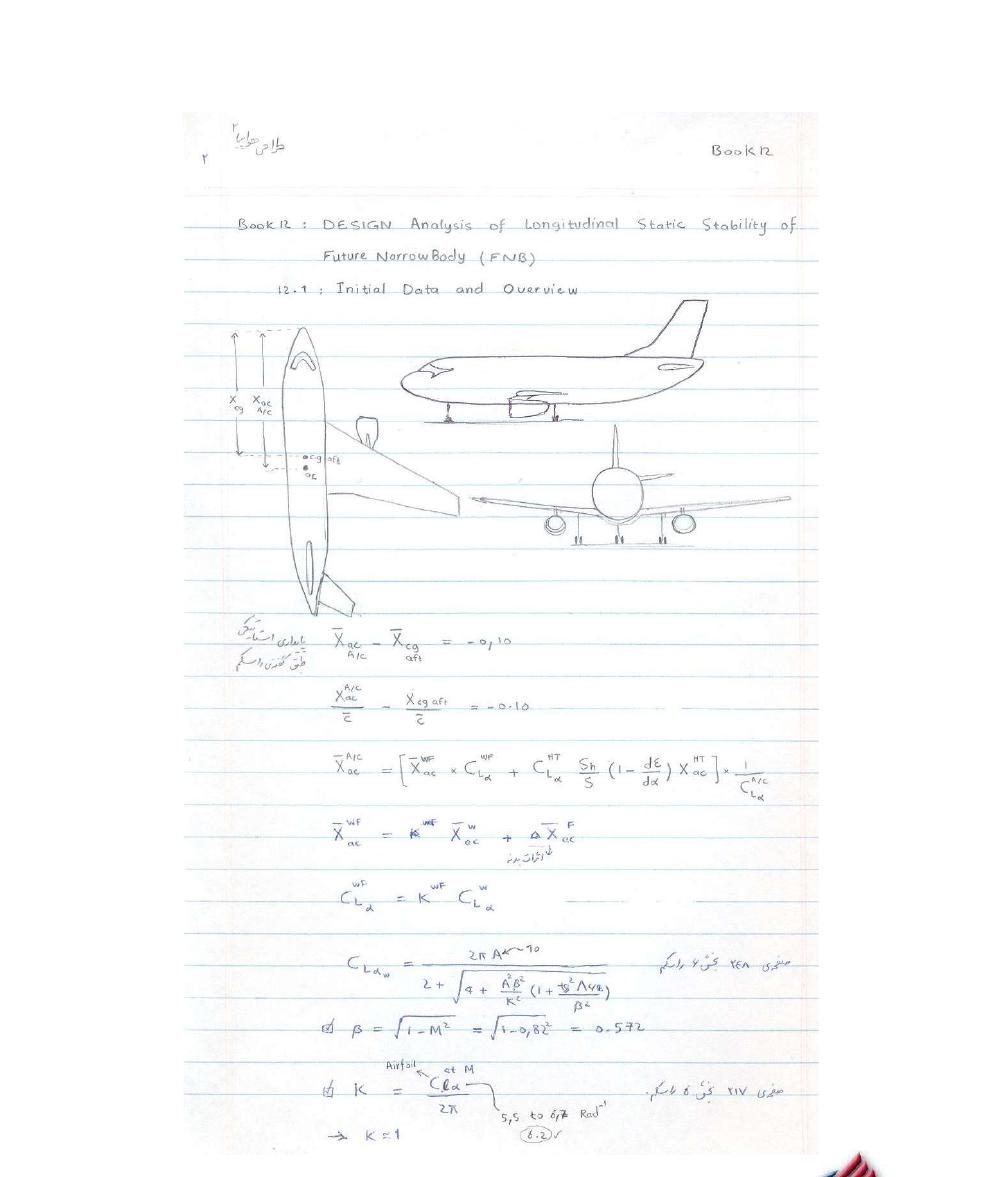 طراحی هواپیما ۲
Book 12
۲
Book 12 : DESIGN Analysis of Longitudinal Static Stability of
Future NarrowBody (FNB)
12.1 : Initial Data and Overview
X cg X ac A/C
cg aft
ac
پایداری استاتیکی X̄ ac A/C − X̄ cg aft = -0,10
طبق گفته‌ی راسکم
X ac A/C / c̄ − X cg aft / c̄ = -0.10
X̄ ac A/C = [ X̄ ac WF × C Lα WF + C Lα HT Sh/S (1 - dε/dα) X ac HT ] × 1 / C Lα A/C
X̄ ac WF = X̄ ac W + Δ X̄ ac F
اثرات بدنه
C Lα WF = K WF C Lα W
C Lαw = 2π A / 2 + √(4 + A²β²/K² (1 + tg² Λ / β²)) ← 10 صفحه‌ی ۲۴۸ بخش ۶ راسکم
β = √(1 - M²) = √(1 - 0,82²) = 0.572
K = Clα / 2π Airfoil at M صفحه‌ی ۲۱۷ بخش ۶ راسکم.
5,5 to 6,7 Rad⁻¹
→ K ≃ 1 6.2 ✓